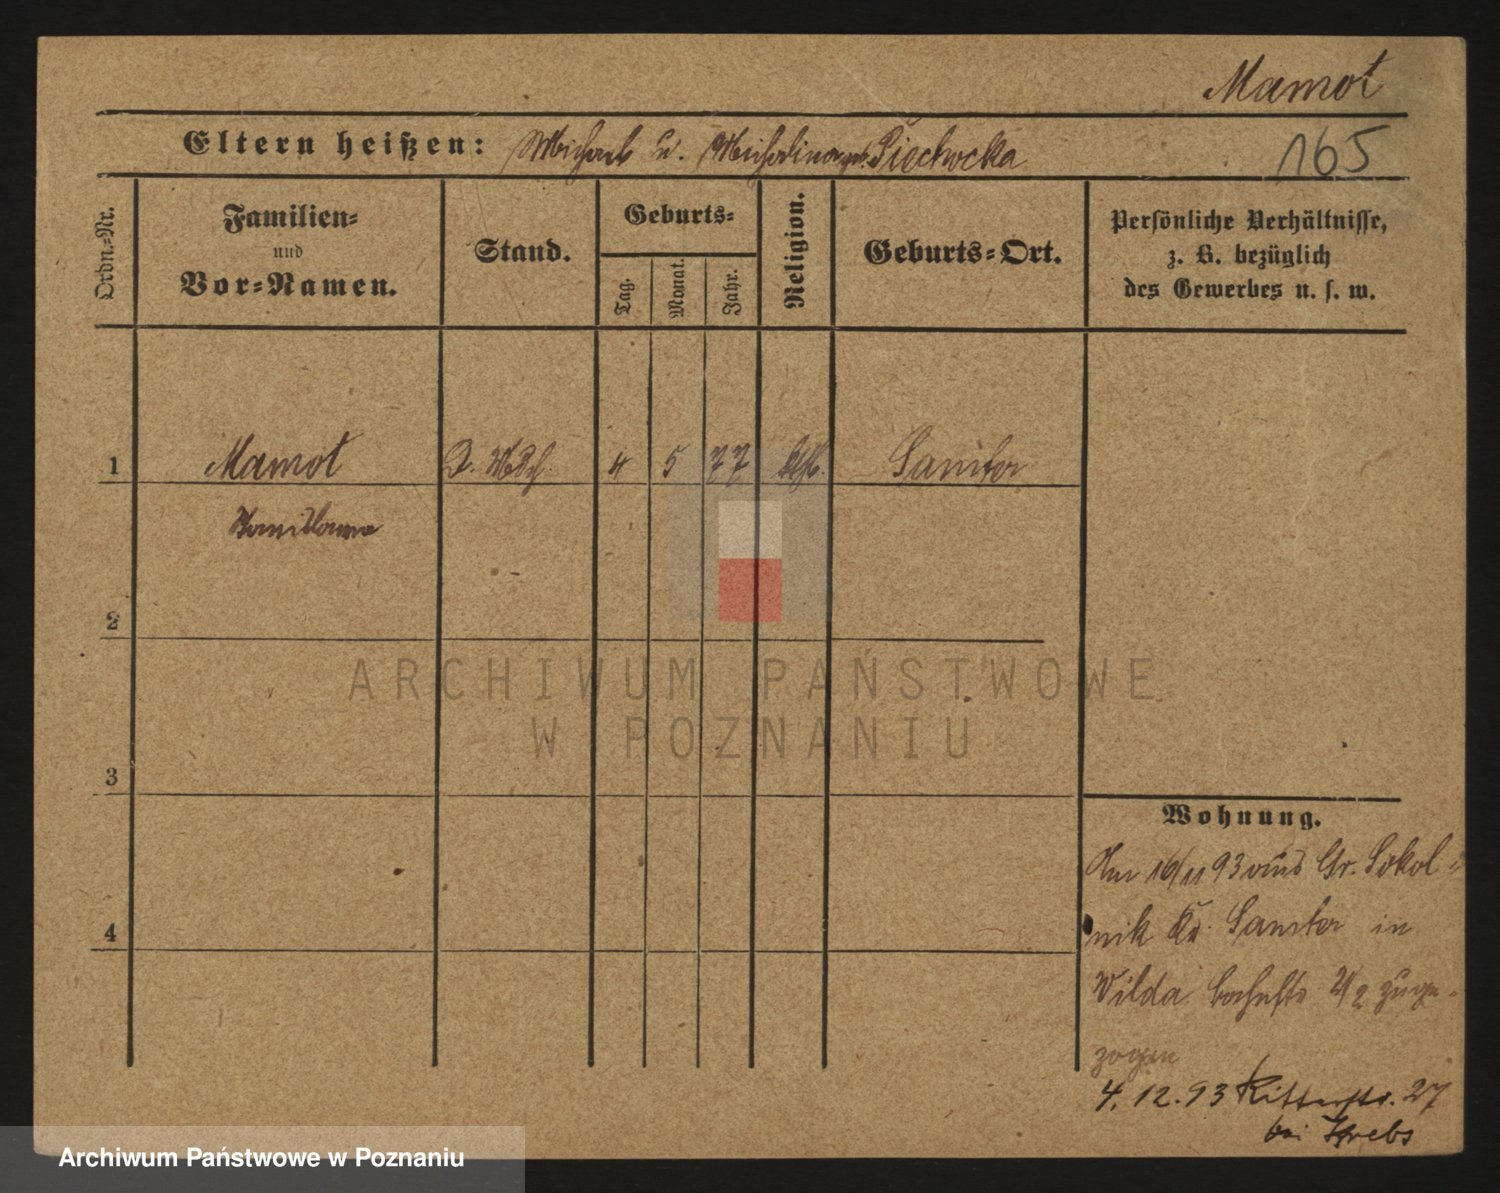 Mamot
Eltern heißen: Michael u. Michalina geb. Piechocka
165
Ordn.-Nr.
Familien-
und
Vor-Namen.
Stand.
Geburts-
Tag.
Monat.
Jahr.
Religion.
Geburts-Ort.
Persönliche Verhältnisse,
z. B. bezüglich
des Gewerbes u. s. w.
1 Mamot 4 5 77 kth. Samter
Stanislawa
2
3
4
Wohnung.
Am 16/11 93 aus Gr. Sokol-
nik Kr. Samter in
Wilda 2/2 zuge-
zogen
4.12.93 Ritterstr. 27
bei Krebs
ARCHIWUM PAŃSTWOWE
W POZNANIU
Archiwum Państwowe w Poznaniu